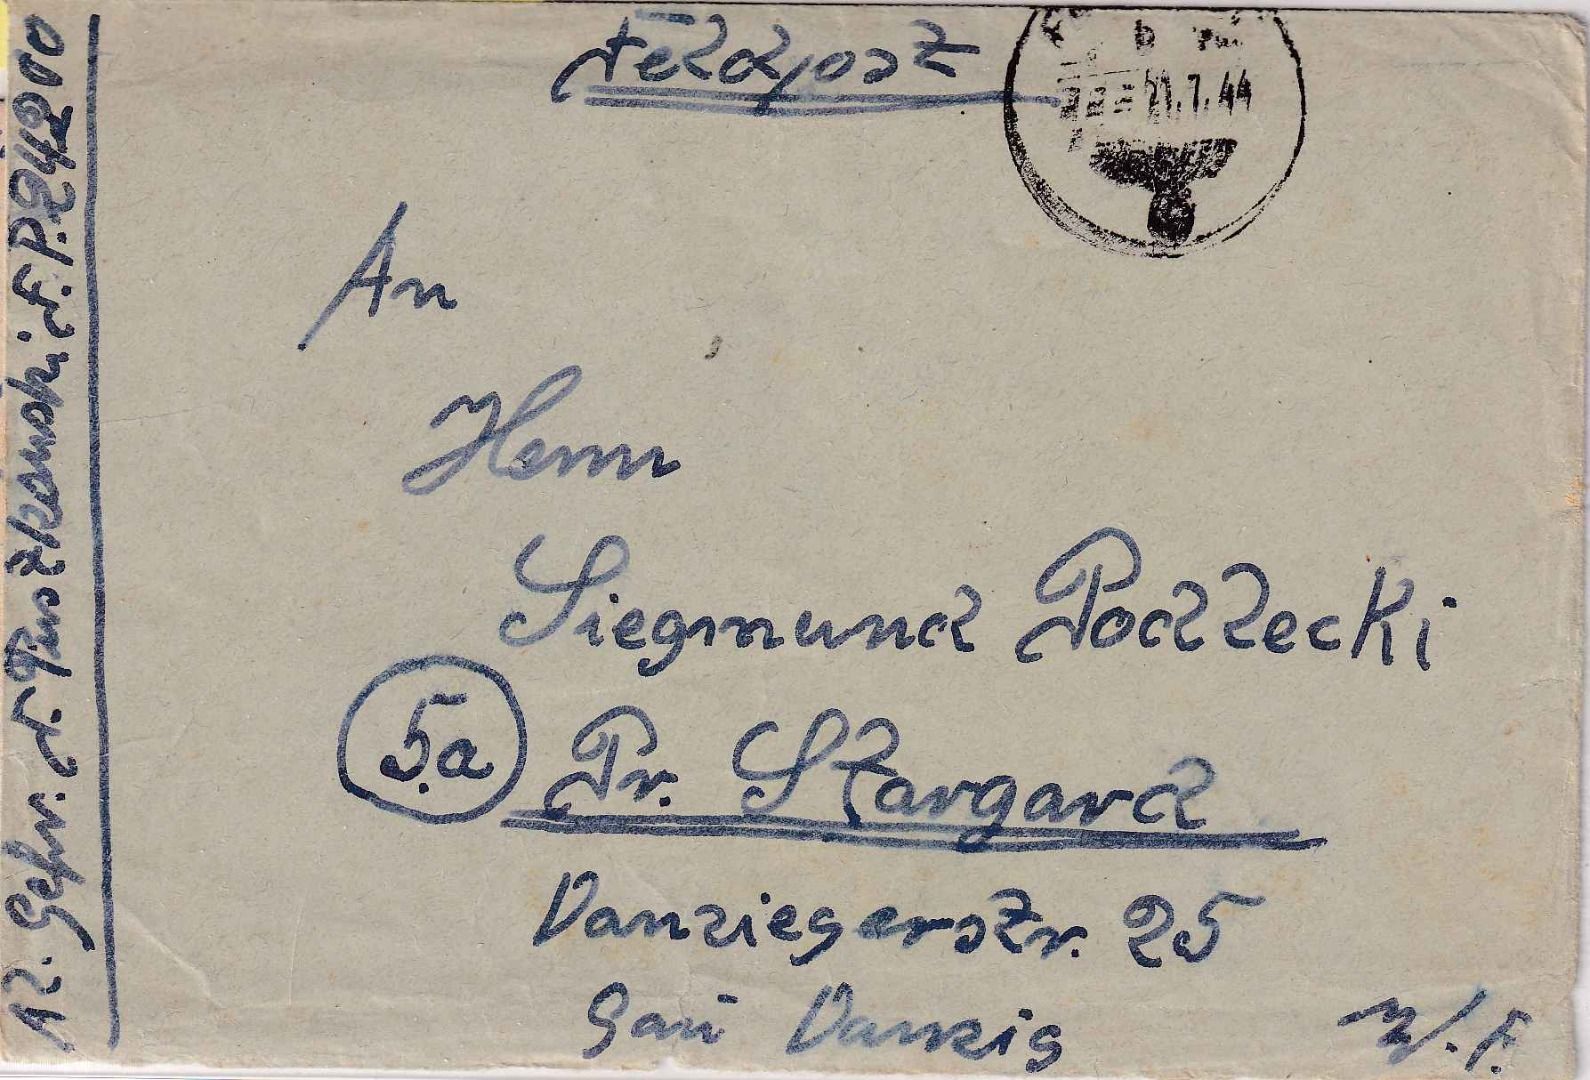 Feldpost
21.7.44
An
Herrn
Siegmund Podzecki
5a Pr. Stargard
Danziegerstr. 25
Gau Danzig
W.P.
Az. Gefr. J. F.P. 24200